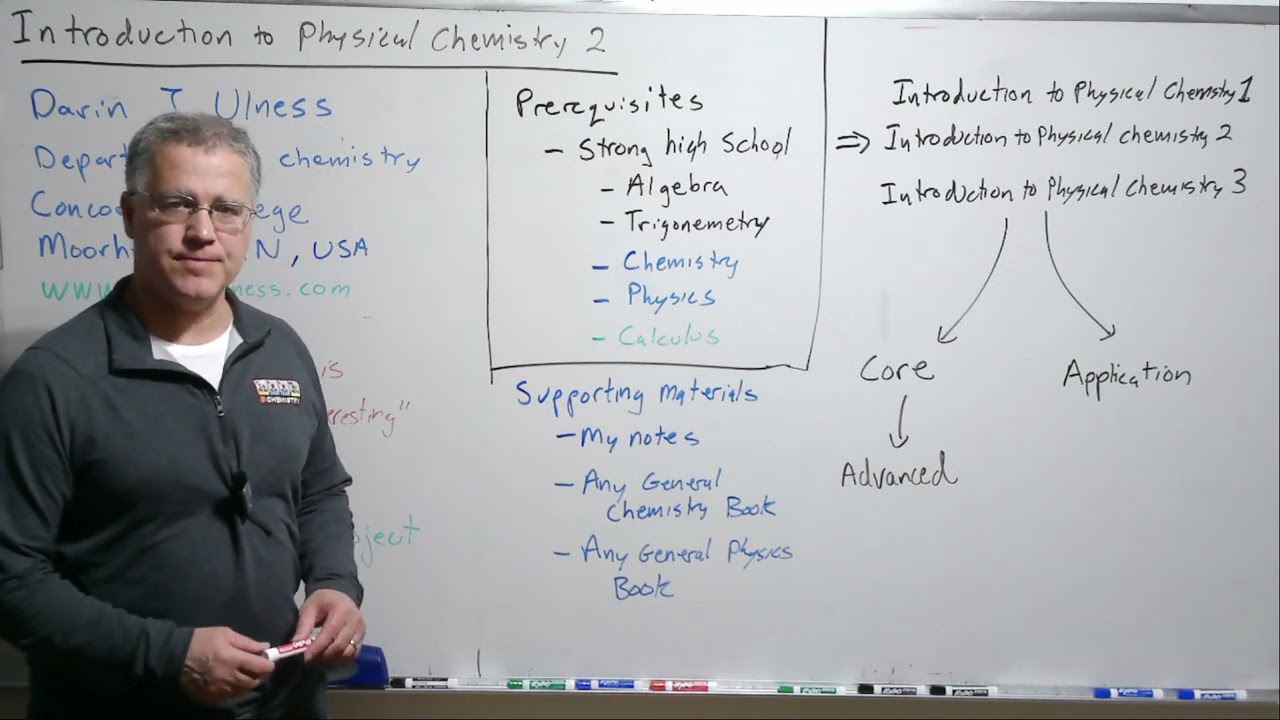 Introduction to Physical Chemistry 2
Darin J. Ulness
chemistry
MN, USA
www
ness.com
is
"
ject
Prerequisites
- Strong high School
- Algebra
- Trigonemetry
- Chemistry
- Physics
- Calculus
Supporting materials
- My notes
- Any General
Chemistry Book
- Any General Physics
Book
Introduction to Physical Chemstry 1
⇒ Introduction to Physical chemistry 2
Introduction to Physical Chemistry 3
Core
Application
Advanced
CHEMISTRY